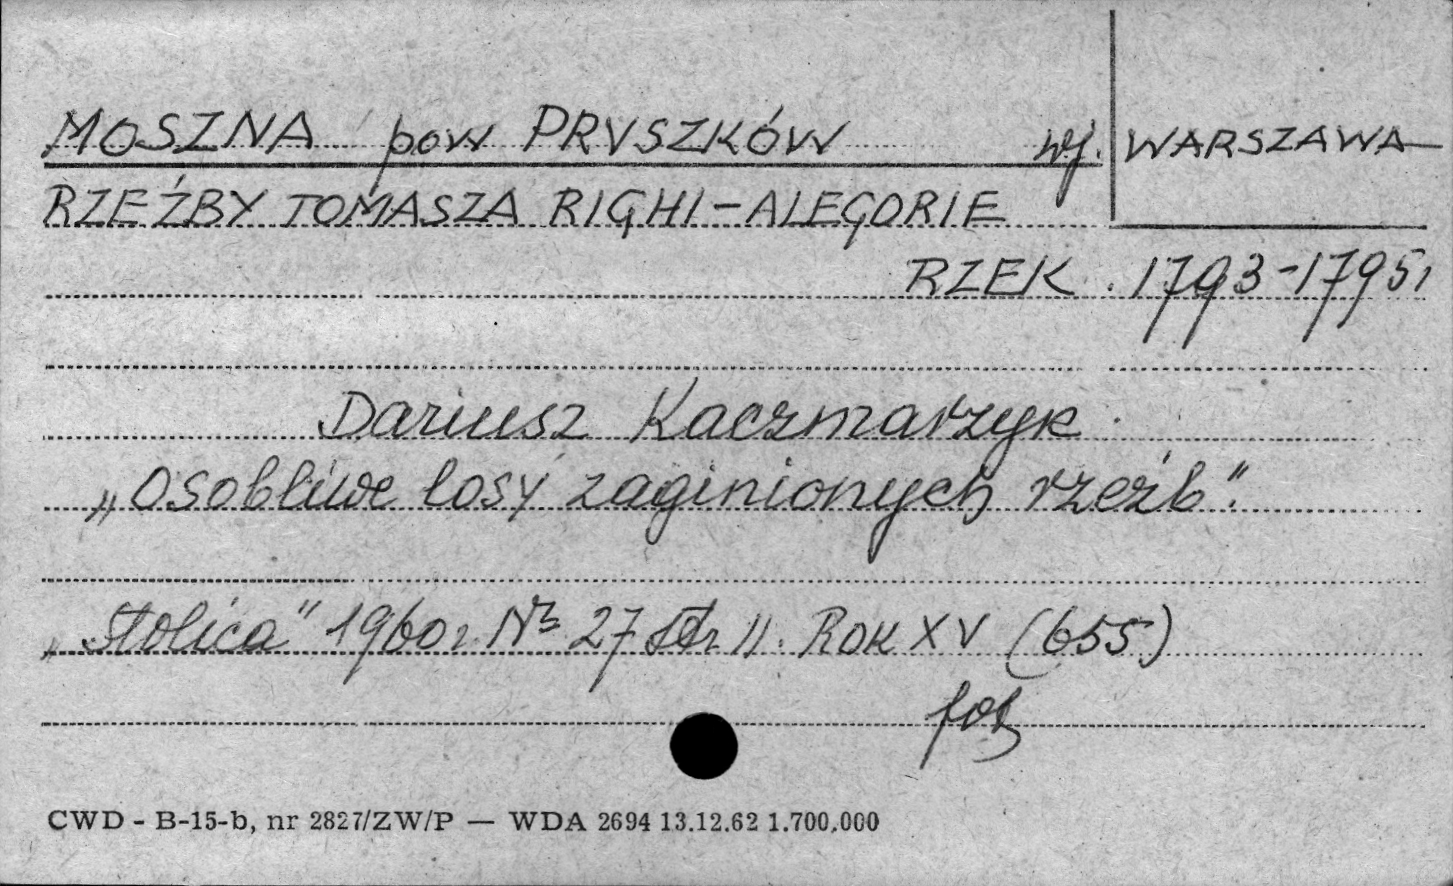 MOSZNA pow PRUSZKÓW wj. WARSZAWA
RZEŹBY TOMASZA RIGHI - ALEGORIE
RZEK . 1793-1795,
Dariusz Kaczmarzyk
„Osobliwe losy zaginionych rzeźb".
„Stolica" 1960r. Nr 27 str 11. Rok XV (655)
fot
CWD - B-15-b, nr 2827/ZW/P — WDA 2694 13.12.62 1.700.000